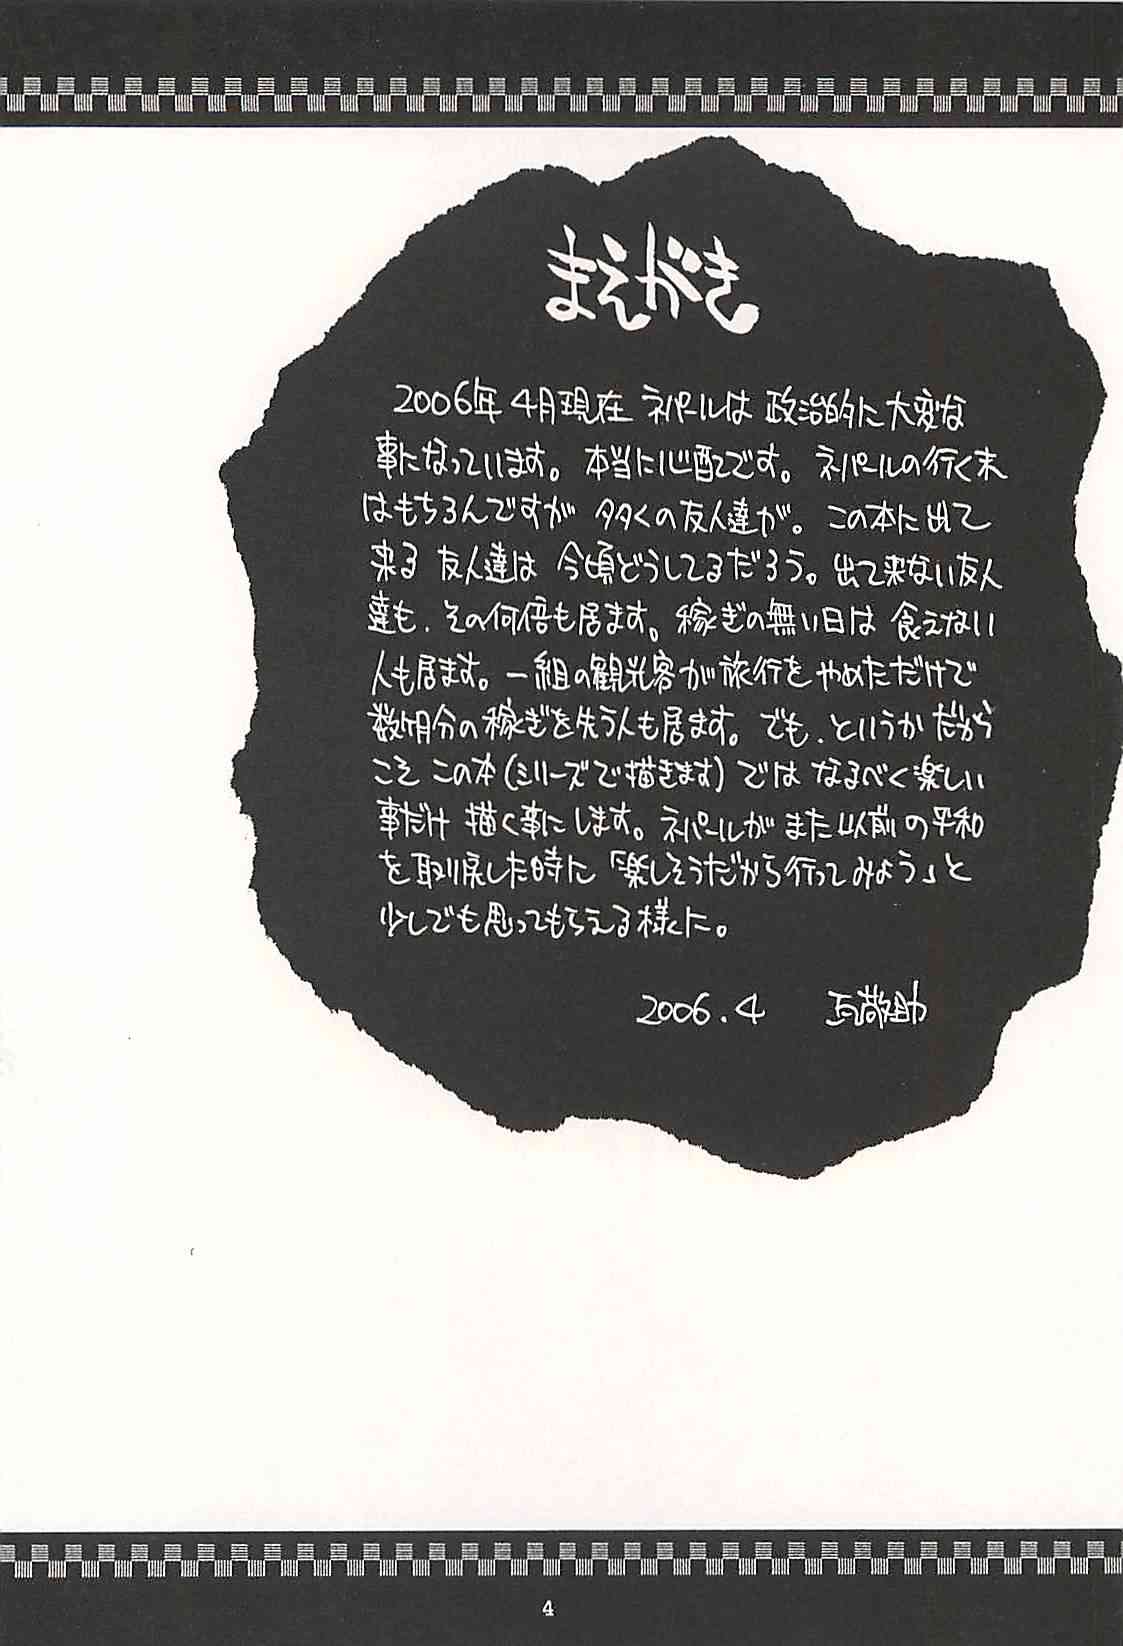 まえがき
2006年4月現在 ネパールは 政治的に大変な
事になっています。本当に心配です。ネパールの行く末
はもちろんですが 多くの友人達が。この本に出て
来る 友人達は 今頃どうしてるだろう。出て来ない友人
達も、その何倍も居ます。稼ぎの無い日は 食えない
人も居ます。一組の観光客が旅行を やめただけで
数ヶ月分の稼ぎを失う人も居ます。でも、というか だから
こそ この本(シリーズで描きます)では なるべく楽しい
事だけ 描く事にします。ネパールが また以前の平和
を取り戻した時に「楽しそうだから行ってみよう」と
少しでも思ってもらえる様に。
2006.4 瓦敬助
4